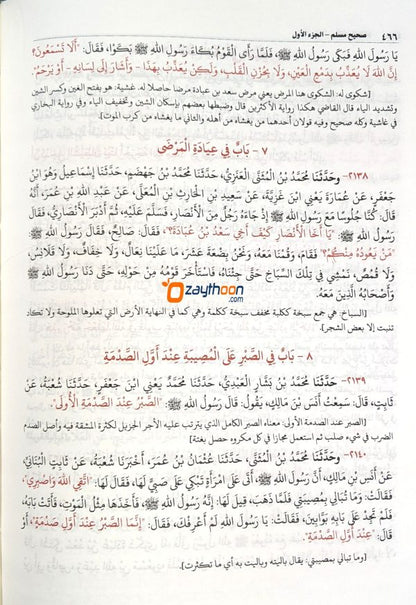 ٤٦٦ صحيح مسلم – الجزء الأول
يَا رَسُولَ اللهِ فَبَكَى رَسُولُ اللهِ ﷺ، فَلَمَّا رَأَى الْقَوْمُ بُكَاءَ رَسُولِ اللهِ ﷺ بَكَوْا، فَقَالَ: "أَلَا تَسْمَعُونَ؟
إِنَّ اللهَ لَا يُعَذِّبُ بِدَمْعِ الْعَيْنِ، وَلَا بِحُزْنِ الْقَلْبِ، وَلَكِنْ يُعَذِّبُ بِهَذَا – وَأَشَارَ إِلَى لِسَانِهِ – أَوْ يَرْحَمُ".
[شكوى له: الشكوى هنا المرض يعني مرض سعد بن عبادة مرضا حاصلا له. غشية: هو بفتح الغين وكسر الشين
وتشديد الياء قال القاضي هكذا رواية الأكثرين قال وضبطها بعضهم بإسكان الشين وتخفيف الياء وفي رواية البخاري
في غاشية وكله صحيح وفيه قولان أحدهما من يغشاه من أهله والثاني ما يغشاه من كرب الموت]
٧ – بَابٌ فِي عِيَادَةِ الْمَرْضَى
٢١٣٨– وحَدَّثَنَا مُحَمَّدُ بْنُ الْمُثَنَّى الْعَنَزِيُّ، حَدَّثَنَا مُحَمَّدُ بْنُ جَهْضَمٍ، حَدَّثَنَا إِسْمَاعِيلُ وَهُوَ ابْنُ
جَعْفَرٍ، عَنْ عُمَارَةَ يَعْنِي ابْنَ غَزِيَّةَ، عَنْ سَعِيدِ بْنِ الْحَارِثِ بْنِ الْمُعَلَّى، عَنْ عَبْدِ اللهِ بْنِ عُمَرَ، أَنَّهُ
قَالَ: كُنَّا جُلُوسًا مَعَ رَسُولِ اللهِ ﷺ إِذْ جَاءَهُ رَجُلٌ مِنَ الْأَنْصَارِ، فَسَلَّمَ عَلَيْهِ، ثُمَّ أَدْبَرَ الْأَنْصَارِيُّ، فَقَالَ
رَسُولُ اللهِ ﷺ: "يَا أَخَا الْأَنْصَارِ كَيْفَ أَخِي سَعْدُ بْنُ عُبَادَةَ؟"، فَقَالَ: صَالِحٌ، فَقَالَ رَسُولُ اللهِ ﷺ:
"مَنْ يَعُودُهُ مِنْكُمْ؟" فَقَامَ، وَقُمْنَا مَعَهُ، وَنَحْنُ بِضْعَةَ عَشَرَ، مَا عَلَيْنَا نِعَالٌ، وَلَا خِفَافٌ، وَلَا قَلَانِسُ،
وَلَا قُمُصٌ، نَمْشِي فِي تِلْكَ السِّبَاخِ حَتَّى جِئْنَاهُ، فَاسْتَأْخَرَ قَوْمُهُ مِنْ حَوْلِهِ، حَتَّى دَنَا رَسُولُ اللهِ ﷺ
وَأَصْحَابُهُ الَّذِينَ مَعَهُ.
Ozaythoon
.com
[السباخ: هي جمع سبخة ككلبة مخفف سبخة ككلمة وهي كما في النهاية الأرض التي تعلوها الملوحة ولا تكاد
تنبت إلا بعض الشجر]
٨ – بَابٌ فِي الصَّبْرِ عَلَى الْمُصِيبَةِ عِنْدَ أَوَّلِ الصَّدْمَةِ
٢١٣٩– حَدَّثَنَا مُحَمَّدُ بْنُ بَشَّارٍ الْعَبْدِيُّ، حَدَّثَنَا مُحَمَّدٌ يَعْنِي ابْنَ جَعْفَرٍ، حَدَّثَنَا شُعْبَةُ، عَنْ
ثَابِتٍ، قَالَ: سَمِعْتُ أَنَسَ بْنَ مَالِكٍ، يَقُولُ: قَالَ رَسُولُ اللهِ ﷺ: "الصَّبْرُ عِنْدَ الصَّدْمَةِ الْأُولَى".
[الصبر عند الصدمة الأولى: معناه الصبر الكامل الذي يترتب عليه الأجر الجزيل لكثرة المشقة فيه وأصل الصدم
الضرب في شيء صلب ثم استعمل مجازا في كل مكروه حصل بغتة]
٢١٤٠– وحَدَّثَنَا مُحَمَّدُ بْنُ الْمُثَنَّى، حَدَّثَنَا عُثْمَانُ بْنُ عُمَرَ، أَخْبَرَنَا شُعْبَةُ، عَنْ ثَابِتٍ الْبُنَانِيِّ،
عَنْ أَنَسِ بْنِ مَالِكٍ، أَنَّ رَسُولَ اللهِ ﷺ، أَتَى عَلَى امْرَأَةٍ تَبْكِي عَلَى صَبِيٍّ لَهَا، فَقَالَ لَهَا: "اتَّقِي اللهَ وَاصْبِرِي"،
فَقَالَتْ: وَمَا تُبَالِي بِمُصِيبَتِي فَلَمَّا ذَهَبَ، قِيلَ لَهَا: إِنَّهُ رَسُولُ اللهِ ﷺ، فَأَخَذَهَا مِثْلُ الْمَوْتِ، فَأَتَتْ بَابَهُ،
فَلَمْ تَجِدْ عَلَى بَابِهِ بَوَّابِينَ، فَقَالَتْ: يَا رَسُولَ اللهِ لَمْ أَعْرِفْكَ، فَقَالَ: "إِنَّمَا الصَّبْرُ عِنْدَ أَوَّلِ صَدْمَةٍ"، أَوْ
قَالَ: "عِنْدَ أَوَّلِ الصَّدْمَةِ".
[وما تبالي بمصيبتي: يقال باليته وباليت به أي ما تكثرت]